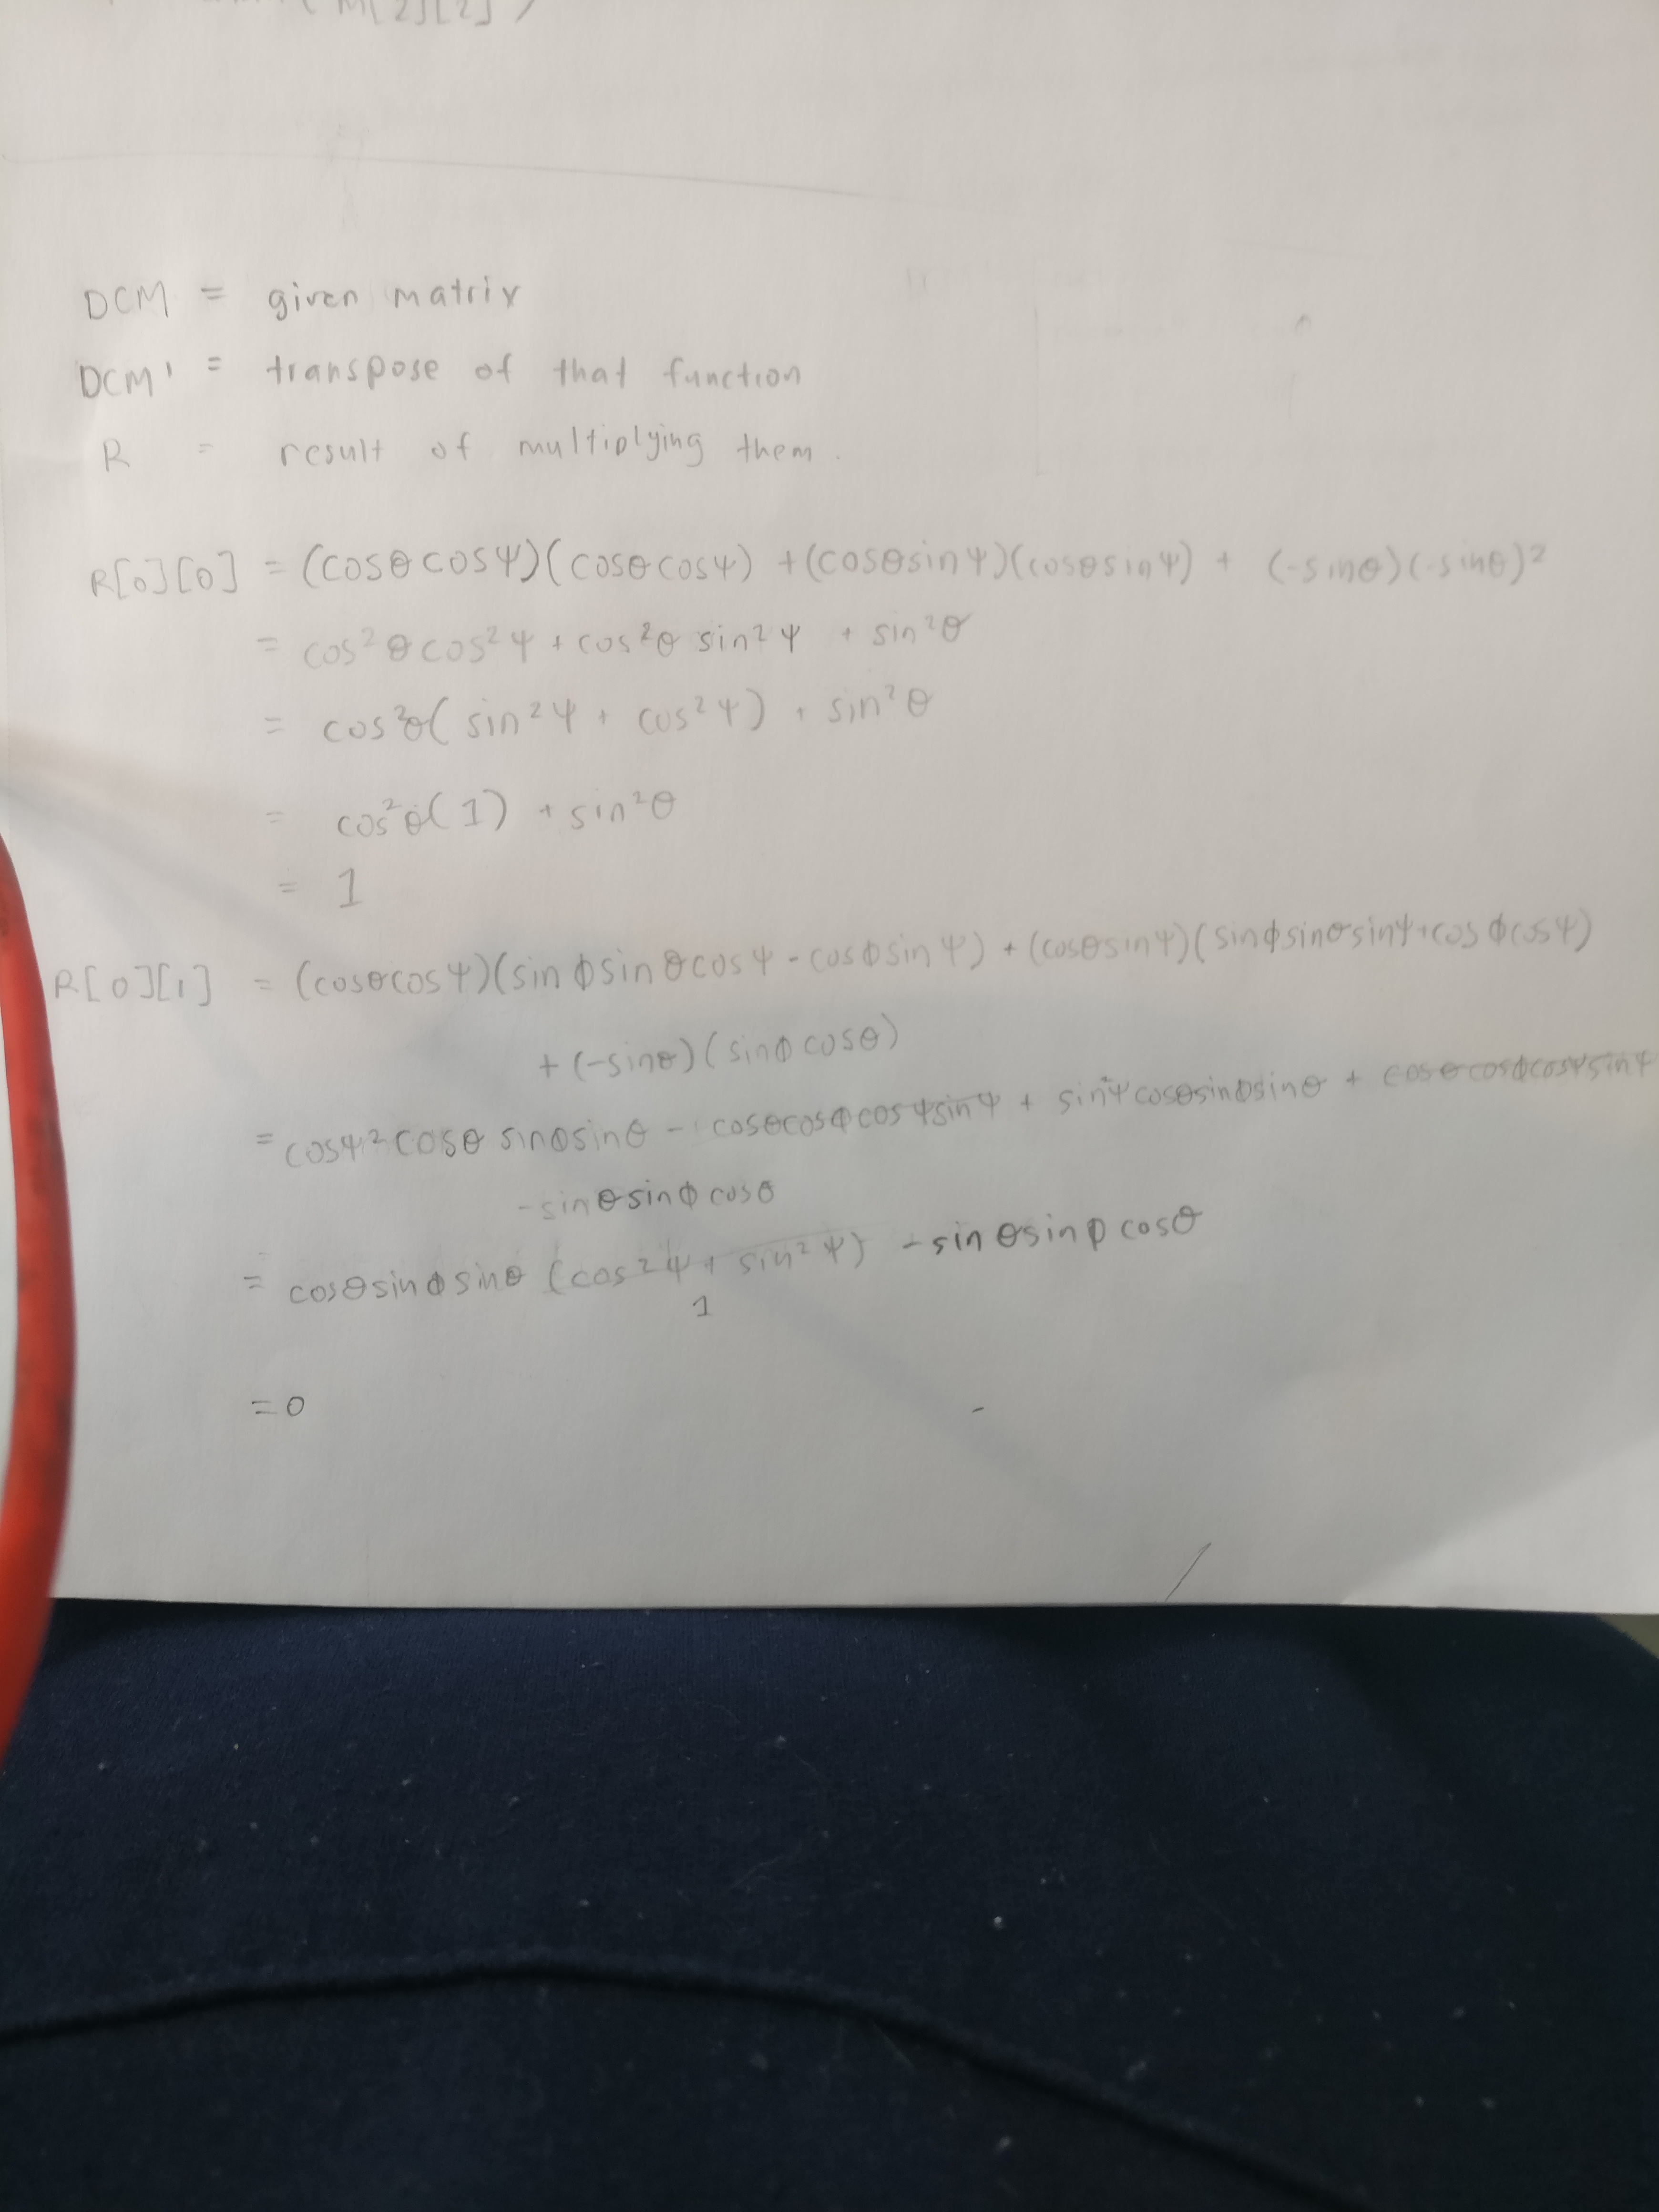 M[2][2] )
DCM = given matrix
DCM' = transpose of that function
R = result of multiplying them.
R[0][0] = (cosθcosΨ)(cosθcosΨ) + (cosθsinΨ)(cosθsinΨ) + (-sinθ)(-sinθ)²
= cos²θcos²Ψ + cos²θ sin²Ψ + sin²θ
= cos²θ( sin²Ψ + cos²Ψ) + sin²θ
= cos²θ(1) + sin²θ
= 1
R[0][1] = (cosθcosΨ)(sinϕsinθcosΨ - cosϕsinΨ) + (cosθsinΨ)(sinϕsinθsinΨ+cosϕcosΨ)
+ (-sinθ)(sinϕcosθ)
= cosΨ²cosθ sinϕsinθ - cosθcosϕcosΨsinΨ + sin²Ψcosθsinϕsinθ + cosθcosϕcosΨsinΨ
-sinθsinϕcosθ
= cosθsinϕsinθ (cos²Ψ + sin²Ψ) - sinθsinϕcosθ
1
= 0